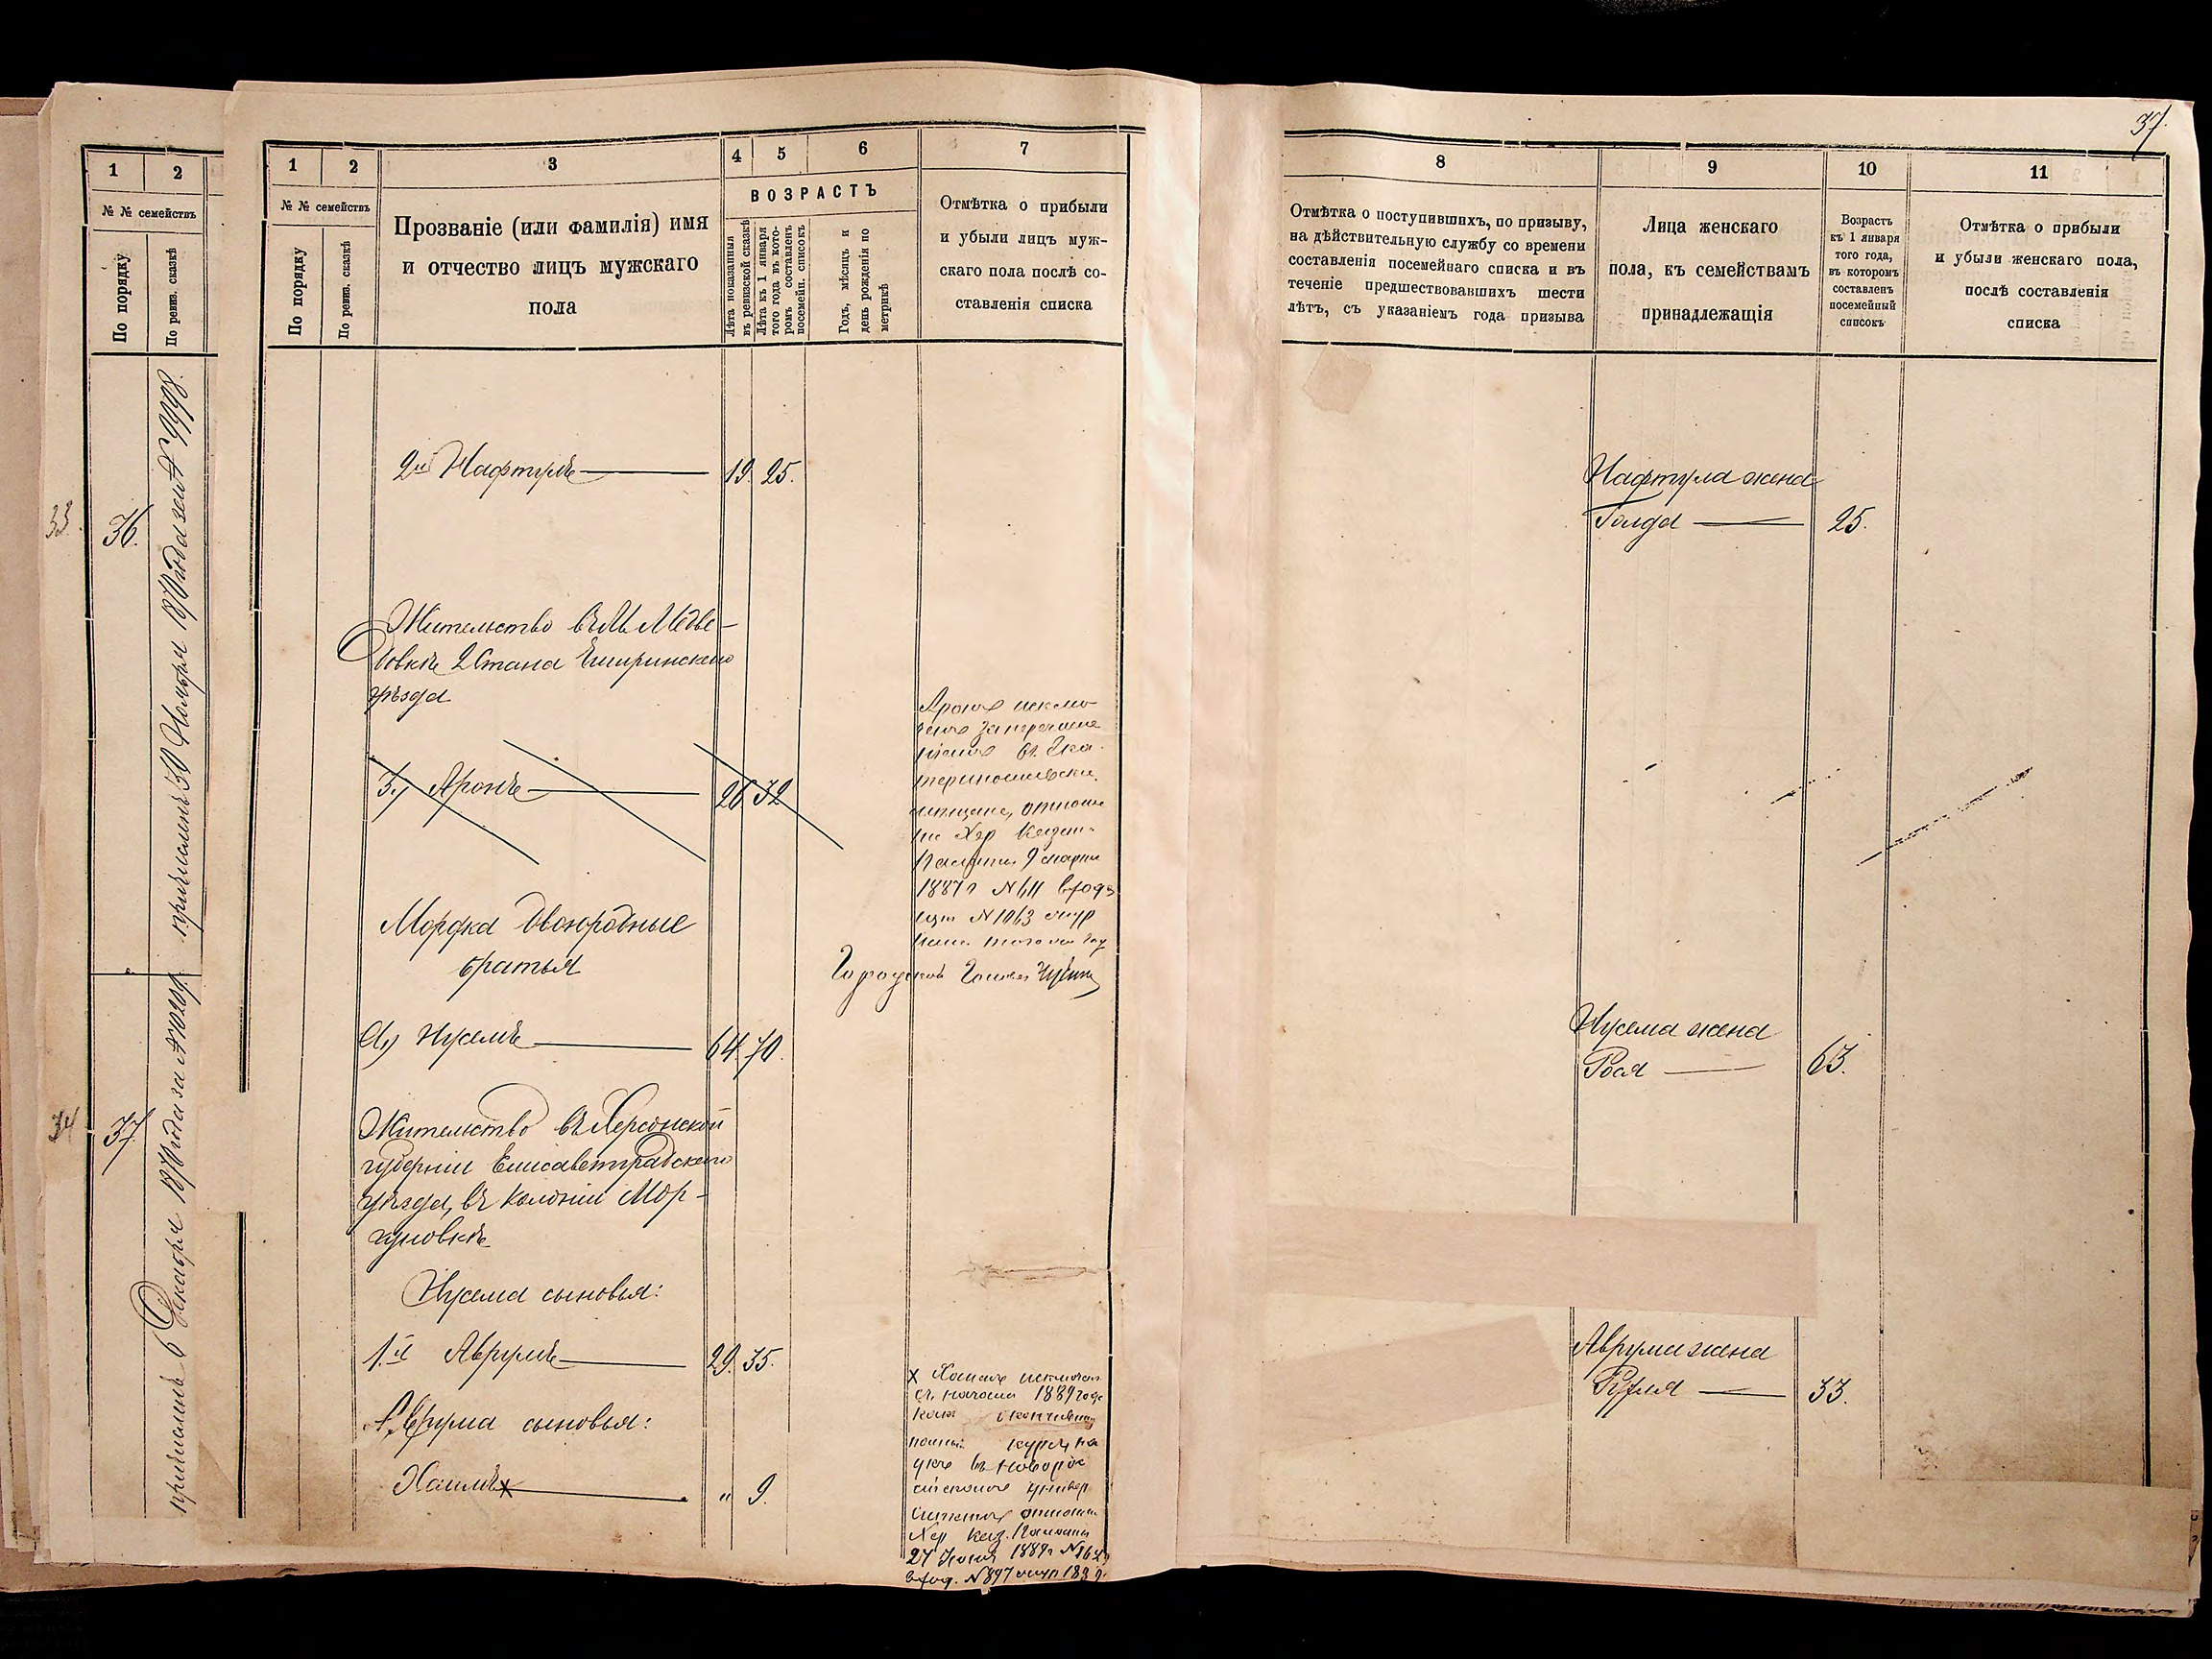 37.
1 2
№ № семействъ
По порядку
По ревиз. сказкѣ
33.
36.
причисленъ 30 Ноября 1870 года за №
34
37
причисленъ 6 Декабря 1870 года за №
1 2 3 4 5 6 7
№ № семействъ
По порядку
По ревиз. сказкѣ
Прозваніе (или фамилія) имя
и отчество лицъ мужскаго
пола
ВОЗРАСТЪ
Лѣта показанныя
въ ревизской сказкѣ
Лѣта къ 1 января
того года въ кото-
ромъ составленъ
посемейн. списокъ
Годъ, мѣсяцъ и
день рожденія по
метрикѣ
Отмѣтка о прибыли
и убыли лицъ муж-
скаго пола послѣ со-
ставленія списка
2й Нафтулъ 19. 25.
Жительство въ М. Медве-
довкѣ 2 Стана Чигиринскаго
уѣзда
3.) Аронъ 26 32
Аронъ исклю-
ченъ за перечисле
ніемъ въ Ека-
теринославскіе
мещане, отноше
ніе Хер Казен-
Палаты 9 марта
1887 г № 611 входя
щій № 1063
того же
Городской Голова
Мордка двоюродные
братья
а) Нусемъ 64. 70.
Жительство въ Херсонской
губерніи Елисаветградскаго
уѣзда, въ колоніи Мор-
гуновкѣ
Нусема сыновья:
1.й Аврумъ 29. 35.
Аврума сыновья:
Хаимъ х " 9.
х Хаимъ исключен
съ начала 1889 года
какъ окончившій
полный курсъ на
укъ въ Новорос
сійскомъ универ
ситетѣ отношен
Хер Каз. Палаты
27 Июня 1889 г
вход. № 897 1889
8 9 10 11
Отмѣтка о поступившихъ, по призыву,
на дѣйствительную службу со времени
составленія посемейнаго списка и въ
теченіе предшествовавшихъ шести
лѣтъ, съ указаніемъ года призыва
Лица женскаго
пола, къ семействамъ
принадлежащія
Возрастъ
къ 1 января
того года,
въ которомъ
составленъ
посемейный
списокъ
Отмѣтка о прибыли
и убыли женскаго пола,
послѣ составленія
списка
Нафтула жена
Голда 25.
Нусема жена
Рося 63.
Аврума жена
Рухля 33.